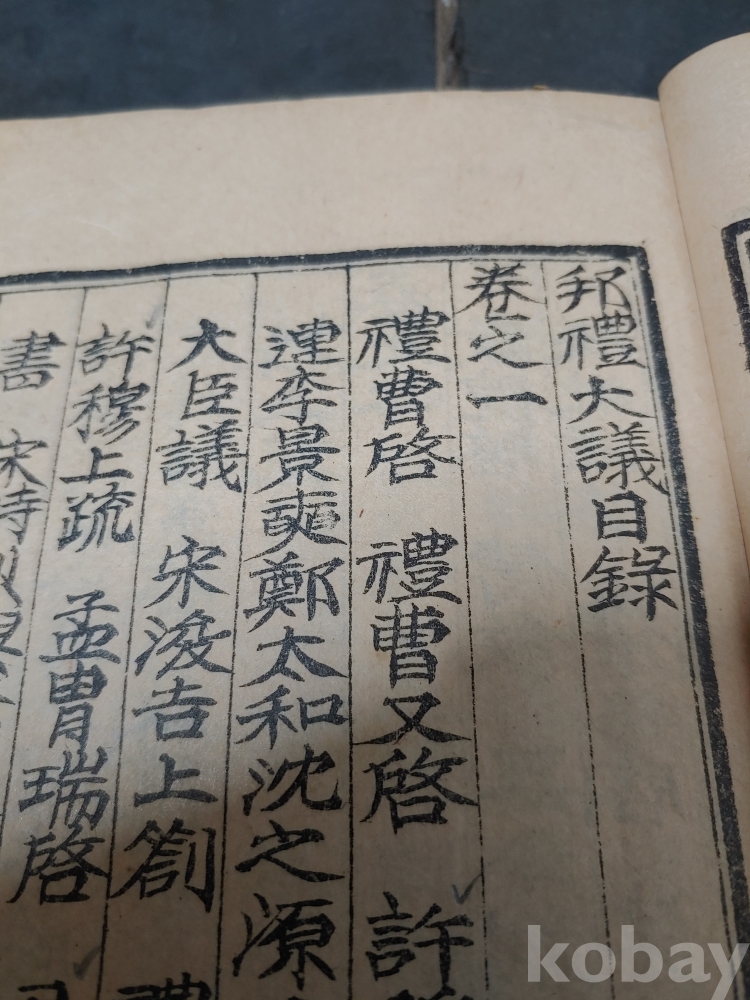 邦禮大議目錄
卷之一
禮曹啓 禮曹又啓 許
連李景奭鄭太和沈之源
大臣議 宋浚吉上劄 禮
許穆上疏 孟胄瑞啓
書 宋時
kobay